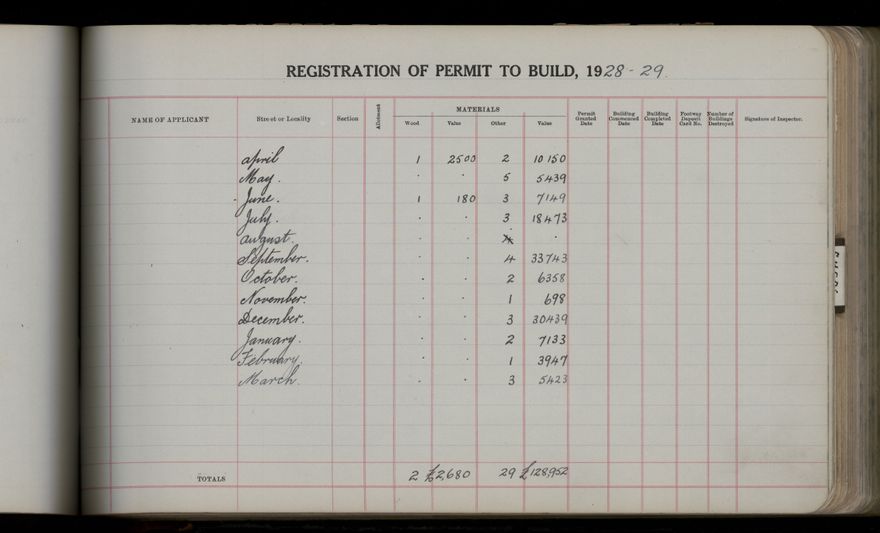 REGISTRATION OF PERMIT TO BUILD, 1928-29.
NAME OF APPLICANT Street or Locality Section Allotment MATERIALS Permit Granted Date Building Commenced Date Building Completed Date Footway Deposit Card No. Number of Buildings Destroyed Signature of Inspector.
Wood Value Other Value
April 1 2500 2 10150
May. . . 5 5439
June. 1 180 3 7149
July. . . 3 18473
August. . . .
September. . . 4 33743
October. . . 2 6358
November. . . 1 698
December. . . 3 30439
January. . . 2 7133
February. . . 1 3947
March. . . 3 5423
TOTALS 2 £2,680 29 £128,952